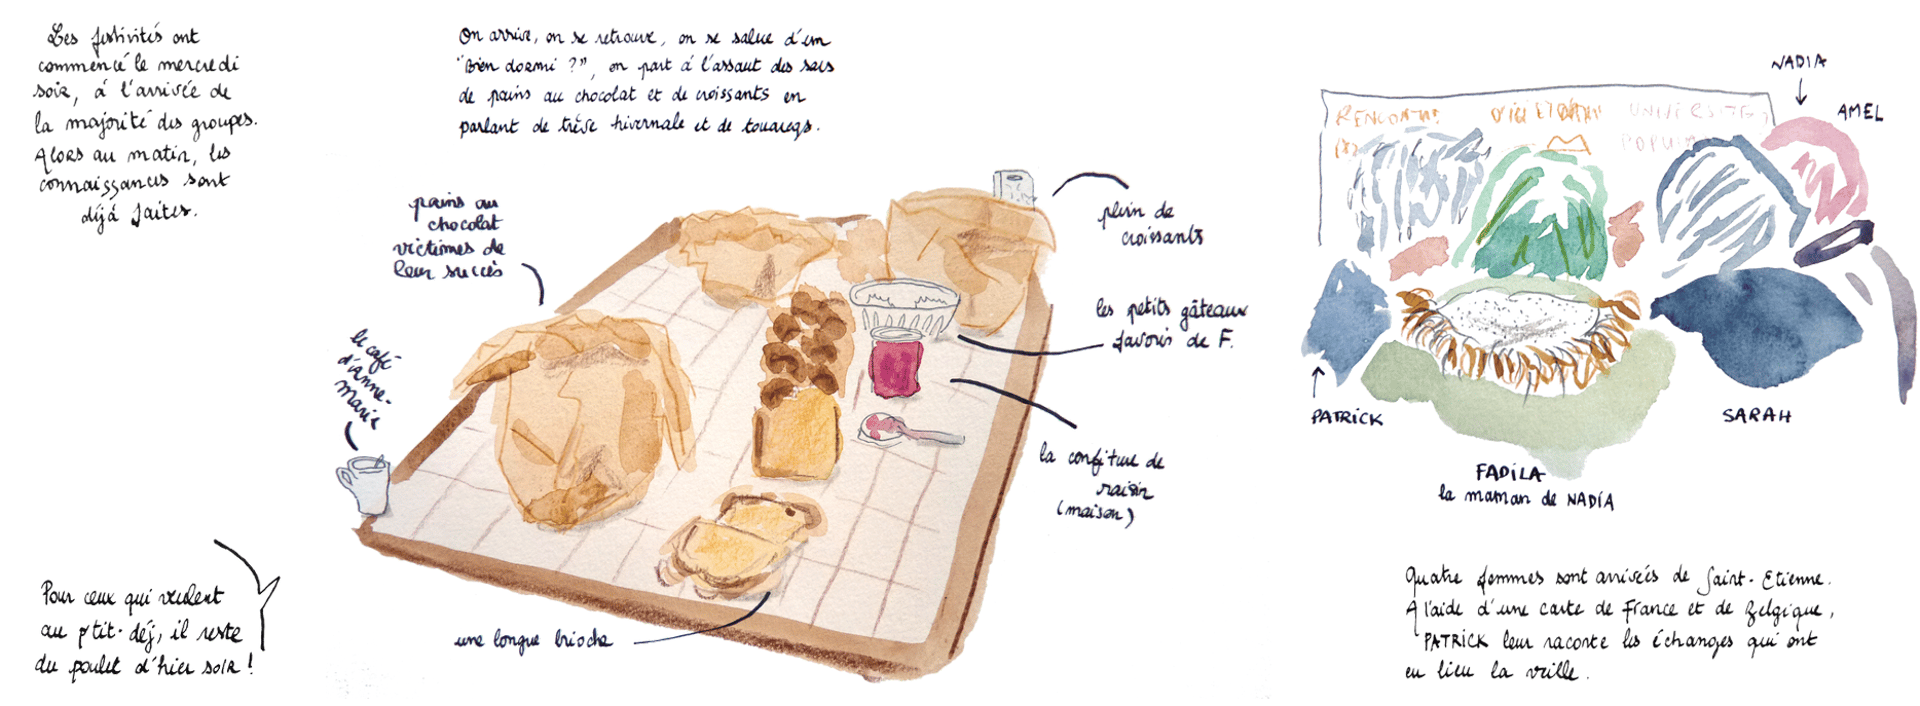 Les festivités ont
commencé le mercredi
soir, à l'arrivée de
la majorité des groupes.
Alors au matin, les
connaissances sont
déjà faites.
Pour ceux qui veulent
au ptit-déj, il reste
du poulet d'hier soir !
On arrive, on se retrouve, on se salue d'un
"Bien dormi ?", on part à l'assaut des sacs
de pains au chocolat et de croissants en
parlant de trêve hivernale et de touaregs.
pains au
chocolat
victimes de
leur succès
le café
d'Anne-
Marie
plein de
croissants
les petits gâteaux
favoris de F.
la confiture de
raisin
(maison)
une longue brioche
RENCONTRE UNIVERSITE
POPU
NADIA
AMEL
PATRICK
SARAH
FADILA
la maman de NADIA
Quatre femmes sont arrivées de Saint-Etienne.
A l'aide d'une carte de France et de Belgique,
PATRICK leur raconte les échanges qui ont
eu lieu la veille.